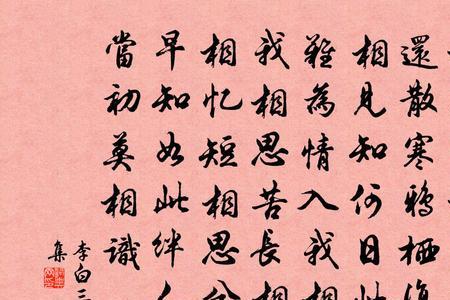 還散寒鴉栖復
相見知何日此
難為情入我相
我相思苦長相
相忆短相思兮
早知如此絆人
當初莫相識
李白三
集